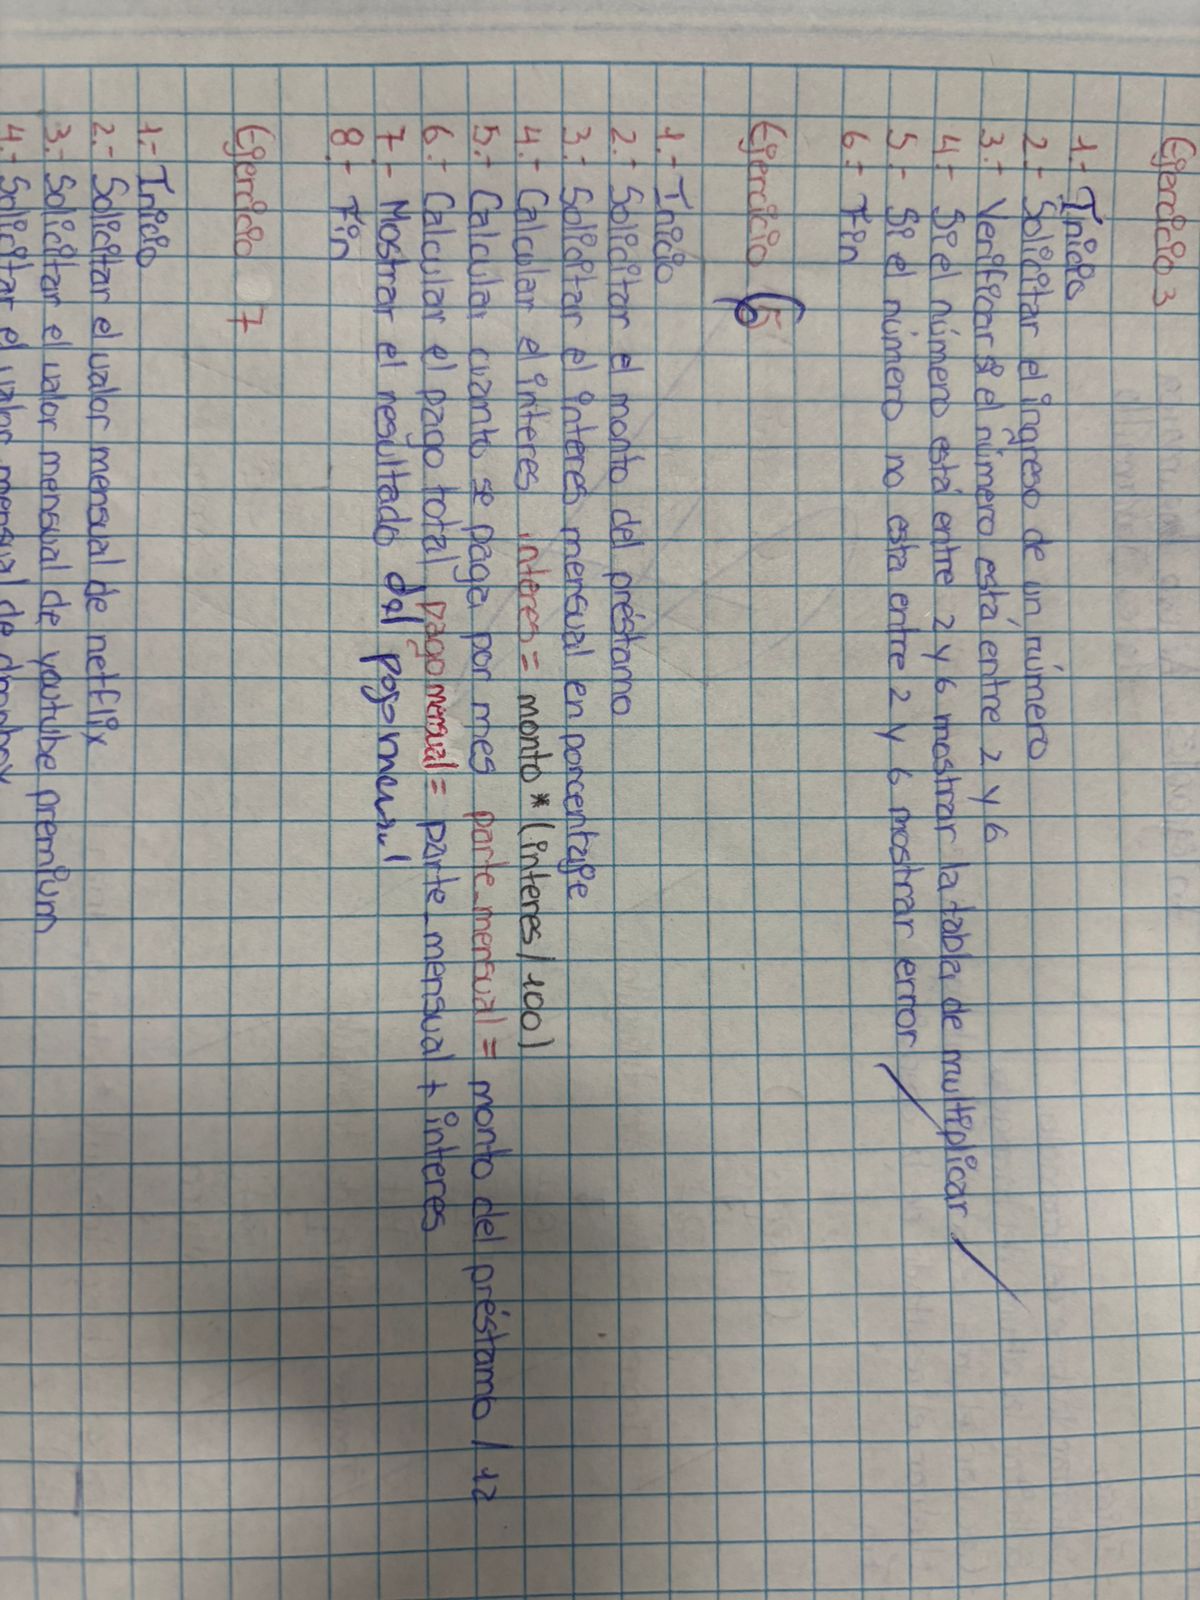 Ejercicio 3
1.- Inicio
2.- Solicitar el ingreso de un número
3.- Verificar si el número está entre 2 y 6
4.- Si el número está entre 2 y 6 mostrar la tabla de multiplicar
5.- Si el número no esta entre 2 y 6 mostrar error
6.- Fin
Ejercicio 6
1.- Inicio
2.- Solicitar el monto del préstamo
3.- Solicitar el interes mensual en porcentaje
4.- Calcular el interes interes = monto * (interes / 100)
5.- Calcular cuanto se paga por mes parte_mensual = monto del préstamo / 12
6.- Calcular el pago total pago mensual = parte_mensual + interes
7.- Mostrar el resultado del pago mensual
8.- Fin
Ejercicio 7
1.- Inicio
2.- Solicitar el valor mensual de netflix
3.- Solicitar el valor mensual de youtube premium
4.- Solicitar el valor mensual de dropbox